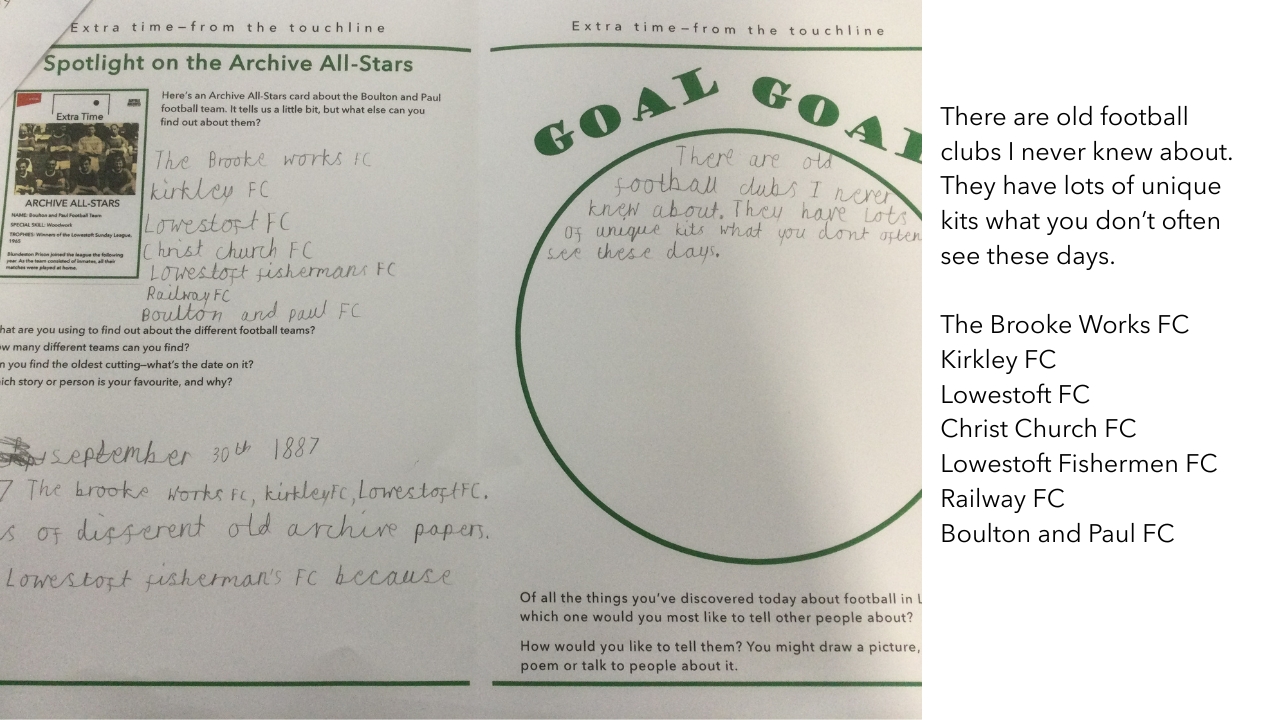 Extra time—from the touchline
Spotlight on the Archive All-Stars
Extra Time
ARCHIVE ALL-STARS
NAME: Boulton and Paul Football Team
SPECIAL SKILL: Woodwork
TROPHIES: Winners of the Lowestoft Sunday League,
1965
Blundeston Prison joined the league the following
year. As the team consisted of inmates, all their
matches were played at home.
Here's an Archive All-Stars card about the Boulton and Paul
football team. It tells us a little bit, but what else can you
find out about them?
The Brooke works FC
kirkley FC
Lowestoft FC
Christ church FC
Lowestoft fishermans FC
Railway FC
Boulton and paul FC
hat are you using to find out about the different football teams?
ow many different teams can you find?
n you find the oldest cutting—what's the date on it?
ich story or person is your favourite, and why?
september 30th 1887
7 The brooke works FC, kirkleyFC, LowestoftFC.
s of different old archive papers.
Lowestoft fisherman's FC because
Extra time—from the touchline
GOAL GOAL
There are old
football clubs I never
knew about. They have Lots
of unique kits what you dont often
see these days.
Of all the things you've discovered today about football in L
which one would you most like to tell other people about?
How would you like to tell them? You might draw a picture,
poem or talk to people about it.
There are old football
clubs I never knew about.
They have lots of unique
kits what you don't often
see these days.
The Brooke Works FC
Kirkley FC
Lowestoft FC
Christ Church FC
Lowestoft Fishermen FC
Railway FC
Boulton and Paul FC